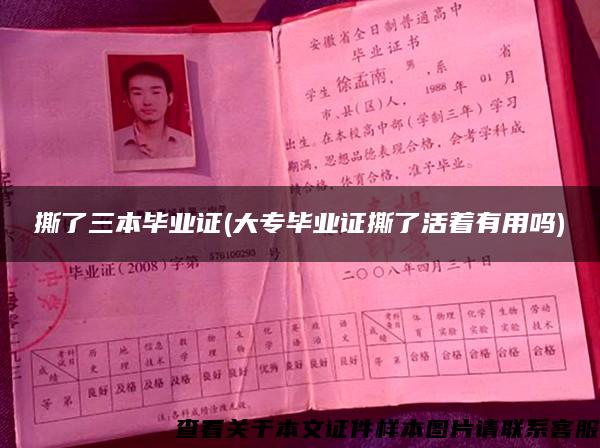 安徽省全日制普通高中
毕业证书
学生徐孟南，男，系 省
市、县(区)人，1988年01月
出生。在本校高中部（学制三年）学习
期满，思想品德表现合格，会考学科成
绩合格，体育合格，准予毕业。
撕了三本毕业证(大专毕业证撕了活着有用吗)
毕业证（2008）字第576100293号
二〇〇八年四月三十日
考试科目 历史 地理 信息技术 数学 物理 生物 化学 英语 政治 语文
成绩
等第 良好 及格 及格 及格 良好 良好 优秀 良好
考查科目 体育 物理实验 化学实验 生物实验 劳动技术
成绩
等第 合格 合格 合格 合格 合格
注：各科成绩涂改无效。
查看关于本文证件样本图片请联系客服